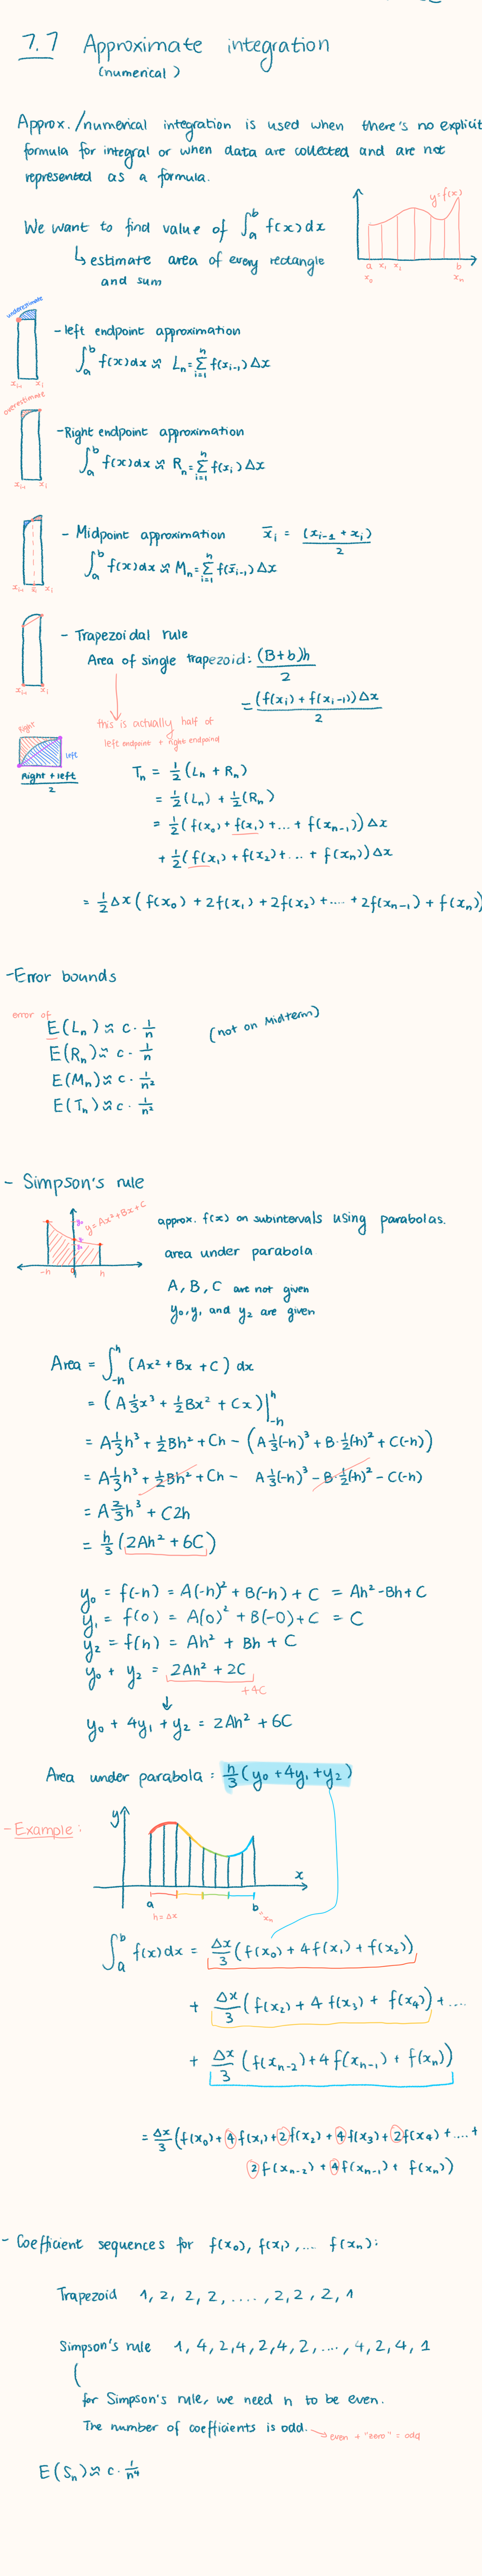 7.7 Approximate integration
(numerical)
Approx./numerical integration is used when there's no explicit
formula for integral or when data are collected and are not
represented as a formula.
We want to find value of ∫_a^b f(x)dx
↳ estimate area of every rectangle
and sum
y=f(x)
a x₁ x₂ b
x₀ xₙ
underestimate
- left endpoint approximation
∫_a^b f(x)dx ≈ Lₙ = Σ_{i=1}^n f(x_{i-1}) Δx
x_{i-1} x_i
overestimate
- Right endpoint approximation
∫_a^b f(x)dx ≈ Rₙ = Σ_{i=1}^n f(x_i) Δx
x_{i-1} x_i
- Midpoint approximation x̄_i = (x_{i-1} + x_i)/2
∫_a^b f(x)dx ≈ Mₙ = Σ_{i=1}^n f(x̄_{i-1}) Δx
x_{i-1} x̄_i x_i
- Trapezoidal rule
Area of single trapezoid: (B+b)h/2
= (f(x_i) + f(x_{i-1}))Δx/2
this is actually half of
left endpoint + right endpoint
Right
left
Right + left
2
Tₙ = ½(Lₙ + Rₙ)
= ½(Lₙ) + ½(Rₙ)
= ½(f(x₀) + f(x₁) + ... + f(x_{n-1}))Δx
+ ½(f(x₁) + f(x₂) + ... + f(xₙ))Δx
= ½Δx(f(x₀) + 2f(x₁) + 2f(x₂) + .... + 2f(x_{n-1}) + f(xₙ))
- Error bounds
error of
E(Lₙ) ≈ c · 1/n
(not on Midterm)
E(Rₙ) ≈ c · 1/n
E(Mₙ) ≈ c · 1/n²
E(Tₙ) ≈ c · 1/n²
- Simpson's rule
y=Ax²+Bx+C
-h 0 h
approx. f(x) on subintervals using parabolas.
area under parabola
A, B, C are not given
y₀, y₁ and y₂ are given
Area = ∫_{-h}^h (Ax² + Bx + C) dx
= (A⅓x³ + ½Bx² + Cx)|_{-h}^h
= A⅓h³ + ½Bh² + Ch - (A⅓(-h)³ + B·½(-h)² + C(-h))
= A⅓h³ + ½Bh² + Ch - A⅓(-h)³ - B·½(-h)² - C(-h)
= A⅔h³ + C2h
= h/3 (2Ah² + 6C)
y₀ = f(-h) = A(-h)² + B(-h) + C = Ah² - Bh + C
y₁ = f(0) = A(0)² + B(-0) + C = C
y₂ = f(h) = Ah² + Bh + C
y₀ + y₂ = 2Ah² + 2C
+4C
↓
y₀ + 4y₁ + y₂ = 2Ah² + 6C
Area under parabola = h/3 (y₀ + 4y₁ + y₂)
- Example:
y
x
a b = xₙ
h = Δx
∫_a^b f(x)dx = Δx/3 (f(x₀) + 4f(x₁) + f(x₂))
+ Δx/3 (f(x₂) + 4 f(x₃) + f(x₄)) + ....
+ Δx/3 (f(x_{n-2}) + 4f(x_{n-1}) + f(xₙ))
= Δx/3 (f(x₀) + 4f(x₁) + 2f(x₂) + 4f(x₃) + 2f(x₄) + .... +
2f(x_{n-2}) + 4f(x_{n-1}) + f(xₙ))
- Coefficient sequences for f(x₀), f(x₁), ... f(xₙ):
Trapezoid 1, 2, 2, 2, ...., 2, 2, 2, 1
Simpson's rule 1, 4, 2, 4, 2, 4, 2, ..., 4, 2, 4, 1
for Simpson's rule, we need n to be even.
The number of coefficients is odd. → even + "zero" = odd
E(Sₙ) ≈ c · 1/n⁴